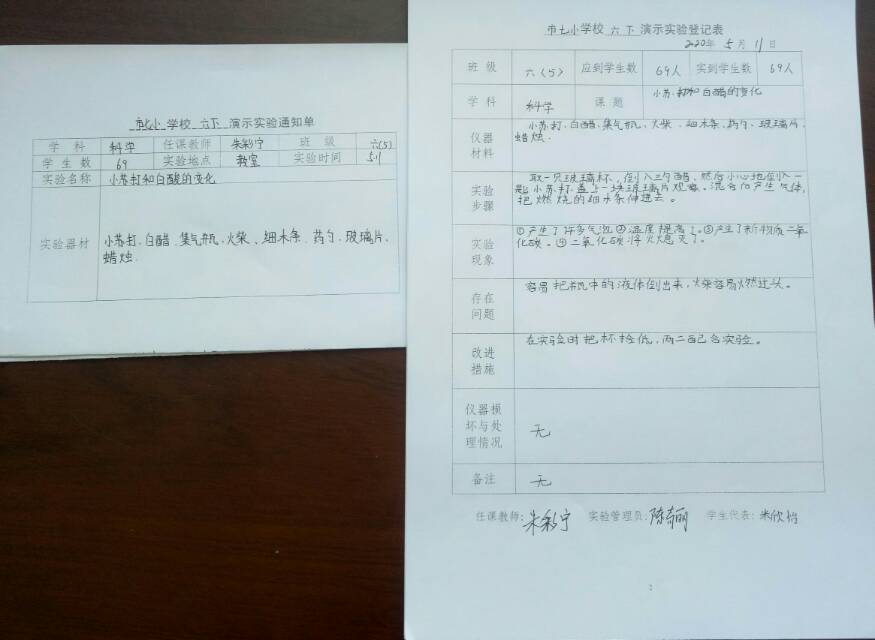 市七小 学校 六下 演示实验通知单
学科 科学 任课教师 朱彩宁 班级 六(5)
学生数 69 实验地点 教室 实验时间 5.11
实验名称 小苏打和白醋的变化
实验器材 小苏打、白醋、集气瓶、火柴、细木条、药勺、玻璃片、
蜡烛.
市七小学校 六 下 演示实验登记表
2020年 5 月 11 日
班级 六(5) 应到学生数 69人 实到学生数 69人
学科 科学 课题 小苏打和白醋的变化
仪器材料 小苏打、白醋、集气瓶、火柴、细木条、药勺、玻璃片、
蜡烛.
实验步骤 取一只玻璃杯,倒入三勺醋,然后小心地倒入一
匙小苏打.盖上一块玻璃片观察。混合后产生气体,
把燃烧的细木条伸进去。
实验现象 ①产生了许多气泡②温度提高了。③产生了新物质二氧
化碳。④二氧化碳将火熄灭了。
存在问题 容易把瓶中的液体倒出来,火柴容易燃过头。
改进措施 在实验时把杯
仪器损坏与处理情况 无
备注 无
任课教师:朱彩宁 实验管理员: 学生代表:米欣怡
2